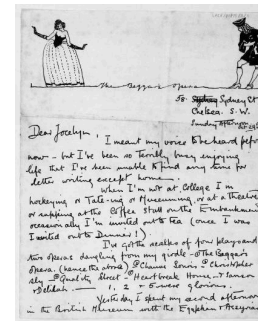 The Beggar's Opera
58. Sydney St
Chelsea. S.W.
Sunday afternoon
Dear Jocelyn,
I meant my voice to be heard before
now – but I've been so terribly busy enjoying
life that I've been unable to find any time for
letter writing except home.
When I'm not at College I'm
hockeying or Tate-ing or Museuming, or at a theatre
or supping at the Coffee Stall on the Embankment
occasionally I'm invited out to tea (once I was
invited out to Dinner!).
I've got the scalps of four plays and
two operas dangling from my girdle – The Beggar's
Opera. (hence the above)
sly – Quality Street – Heartbreak House – Samson
& Delilah.
1, 2 & 5 were glorious.
Yesterday I spent my second afternoon
in the British Museum with the Egyptian & Assyrian